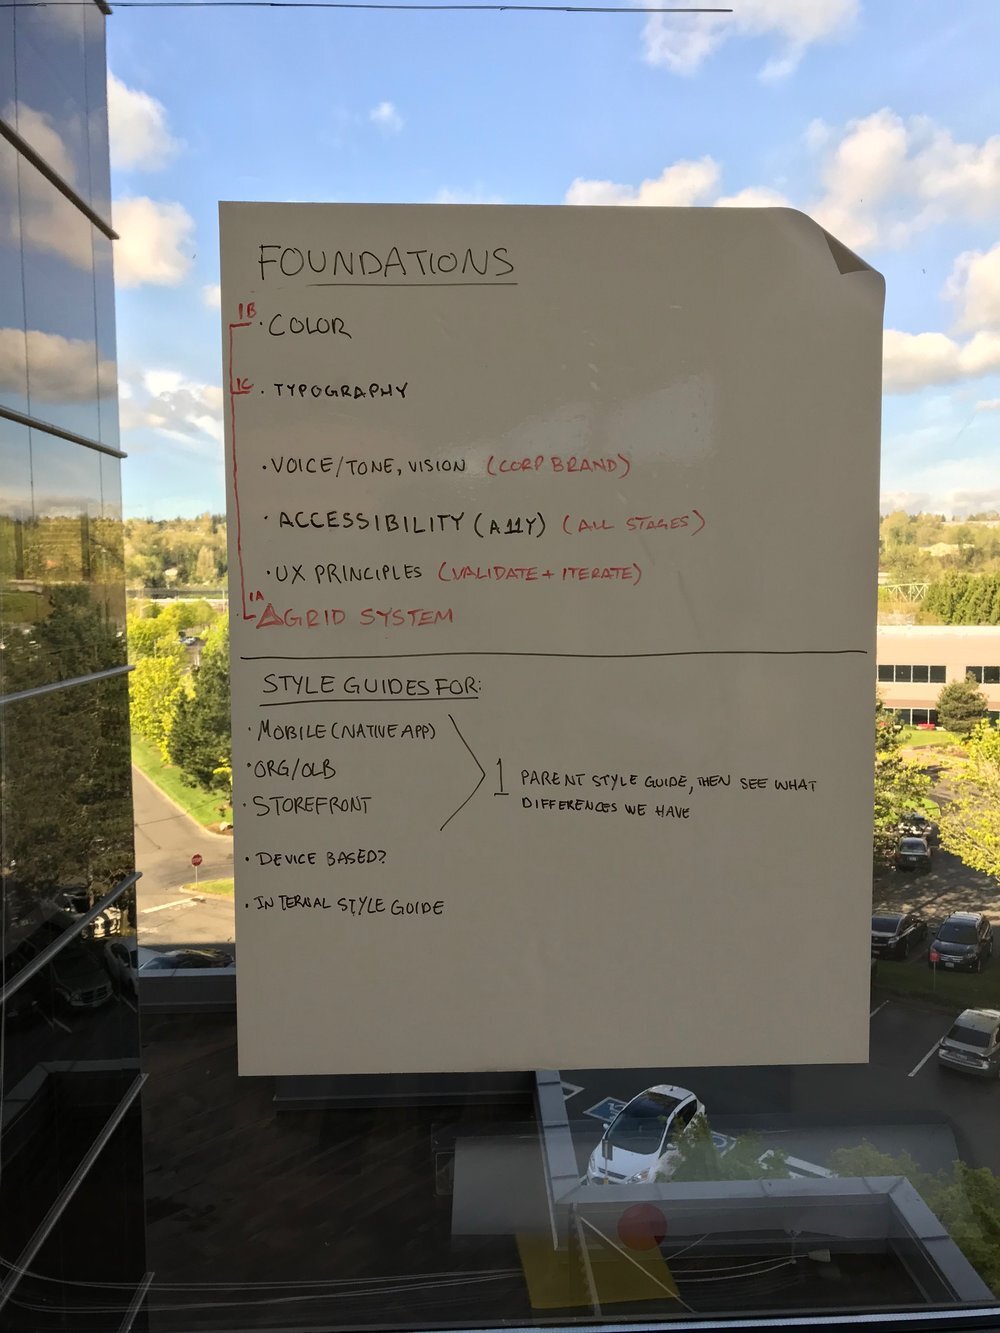 FOUNDATIONS
1B
· COLOR
1C
· TYPOGRAPHY
· VOICE/TONE, VISION (CORP BRAND)
· ACCESSIBILITY (A11Y) (ALL STAGES)
· UX PRINCIPLES (VALIDATE + ITERATE)
1A
GRID SYSTEM
STYLE GUIDES FOR:
· MOBILE (NATIVE APP)
· ORG/OLB
· STOREFRONT
1 PARENT STYLE GUIDE, THEN SEE WHAT
DIFFERENCES WE HAVE
· DEVICE BASED?
· INTERNAL STYLE GUIDE